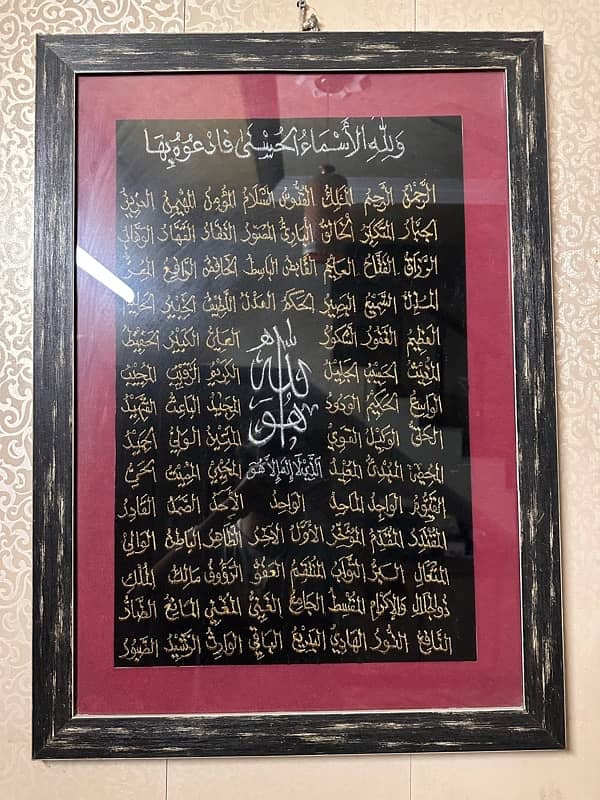 وَلِلَّهِ الأَسْمَاءُ الحُسْنَى فَادْعُوهُ بِهَا
الرَّحْمٰنُ الرَّحِيمُ المَلِكُ القُدُّوسُ السَّلَامُ المُؤْمِنُ المُهَيْمِنُ العَزِيزُ
الجَبَّارُ المُتَكَبِّرُ الخَالِقُ البَارِئُ المُصَوِّرُ الغَفَّارُ القَهَّارُ الوَهَّابُ
الرَّزَّاقُ الفَتَّاحُ العَلِيمُ القَابِضُ البَاسِطُ الخَافِضُ الرَّافِعُ المُعِزُّ
المُذِلُّ السَّمِيعُ البَصِيرُ الحَكَمُ العَدْلُ اللَّطِيفُ الخَبِيرُ الحَلِيمُ
العَظِيمُ الغَفُورُ الشَّكُورُ العَلِيُّ الكَبِيرُ الحَفِيظُ
المُقِيتُ الحَسِيبُ الجَلِيلُ الكَرِيمُ الرَّقِيبُ المُجِيبُ
هُوَ اللهُ
الوَاسِعُ الحَكِيمُ الوَدُودُ المَجِيدُ البَاعِثُ الشَّهِيدُ
الحَقُّ الوَكِيلُ القَوِيُّ المَتِينُ الوَلِيُّ الحَمِيدُ
المُحْصِي المُبْدِئُ المُعِيدُ الَّذِي لَا إِلٰهَ إِلَّا هُوَ المُحْيِي المُمِيتُ الحَيُّ
القَيُّومُ الوَاجِدُ المَاجِدُ الوَاحِدُ الأَحَدُ الصَّمَدُ القَادِرُ
المُقْتَدِرُ المُقَدِّمُ المُؤَخِّرُ الأَوَّلُ الآخِرُ الظَّاهِرُ البَاطِنُ الوَالِي
المُتَعَالِ البَرُّ التَّوَّابُ المُنْتَقِمُ العَفُوُّ الرَّؤُوفُ مَالِكُ المُلْكِ
ذُو الجَلَالِ وَالإِكْرَامِ المُقْسِطُ الجَامِعُ الغَنِيُّ المُغْنِي المَانِعُ الضَّارُّ
النَّافِعُ النُّورُ الهَادِي البَدِيعُ البَاقِي الوَارِثُ الرَّشِيدُ الصَّبُورُ